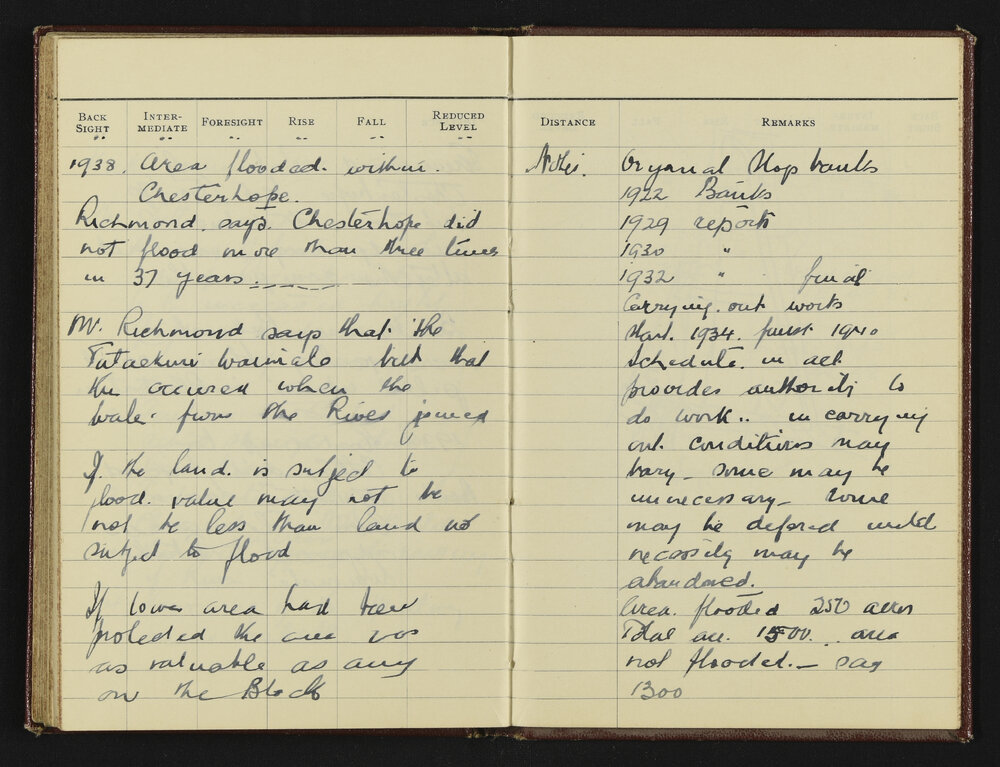 BACK SIGHT INTER-MEDIATE FORESIGHT RISE FALL REDUCED LEVEL
1938. Area flooded. within.
Chesterhope.
Richmond. says. Chesterhope did
not flood more than three times
in 37 years.
Mr. Richmond says that the
Tutaekuri but that
the occured when the
water from the River joined
If the land. is subject to
flood. value may not be
not be less than land not
subject to flood
If lower area had been
protected the area was
as valuable as any
on the Block
DISTANCE REMARKS
Notes. Orignal Hop banks
1922 Banks
1929 reports
1930 "
1932 " final
Carrying. out works
Start. 1934. finist 1940
Schedule. in act
provides authority to
do work.. in carrying
out. conditions may
vary - some may be
unnecessary - some
may be defered until
necessity may be
abandoned.
Area. flooded 250 acres
Total are. 1500. area
not flooded. - say
1300